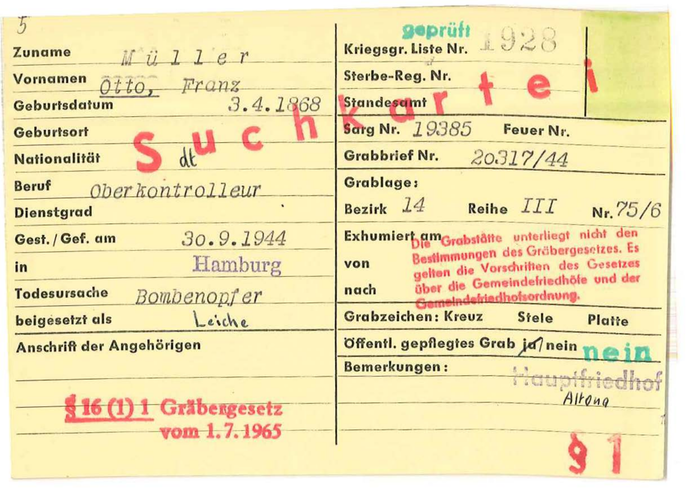 5
Zuname Müller
Vornamen Otto, Franz
Geburtsdatum 3.4.1868
Geburtsort
Nationalität dt
Beruf Oberkontrolleur
Dienstgrad
Gest. / Gef. am 30.9.1944
in Hamburg
Todesursache Bombenopfer
beigesetzt als Leiche
Anschrift der Angehörigen
§ 16 (1) 1 Gräbergesetz
vom 1.7.1965
Suchkartei
geprüft
Kriegsgr. Liste Nr. 1928
Sterbe-Reg. Nr.
Standesamt
Sarg Nr. 19385 Feuer Nr.
Grabbrief Nr. 20317/44
Grablage:
Bezirk 14 Reihe III Nr. 75/6
Exhumiert am
von
nach
Die Grabstätte unterliegt nicht den
Bestimmungen des Gräbergesetzes. Es
gelten die Vorschriften des Gesetzes
über die Gemeindefriedhöfe und der
Gemeindefriedhofsordnung.
Grabzeichen: Kreuz Stele Platte
Öffentl. gepflegtes Grab ja/nein nein
Bemerkungen:
Hauptfriedhof
Altona
§ 1